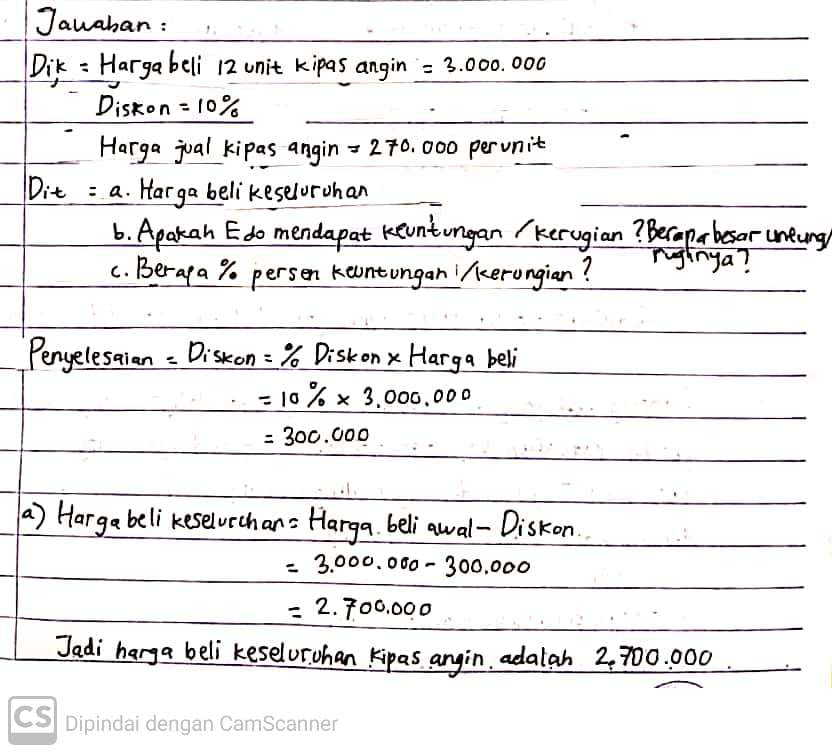 Jawaban :
Dik = Harga beli 12 unit kipas angin = 3.000.000
Diskon = 10%
Harga jual kipas angin = 270.000 perunit
Dit = a. Harga beli keseluruhan
b. Apakah Edo mendapat keuntungan / kerugian ? Berapa besar untung/
ruginya?
c. Berapa % persen keuntungan / kerungian ?
Penyelesaian = Diskon = % Diskon x Harga beli
= 10% x 3.000.000
= 300.000
a) Harga beli keselurchan = Harga beli awal - Diskon
= 3.000.000 - 300.000
= 2.700.000
Jadi harga beli keseluruhan kipas angin adalah 2.700.000
CS Dipindai dengan CamScanner